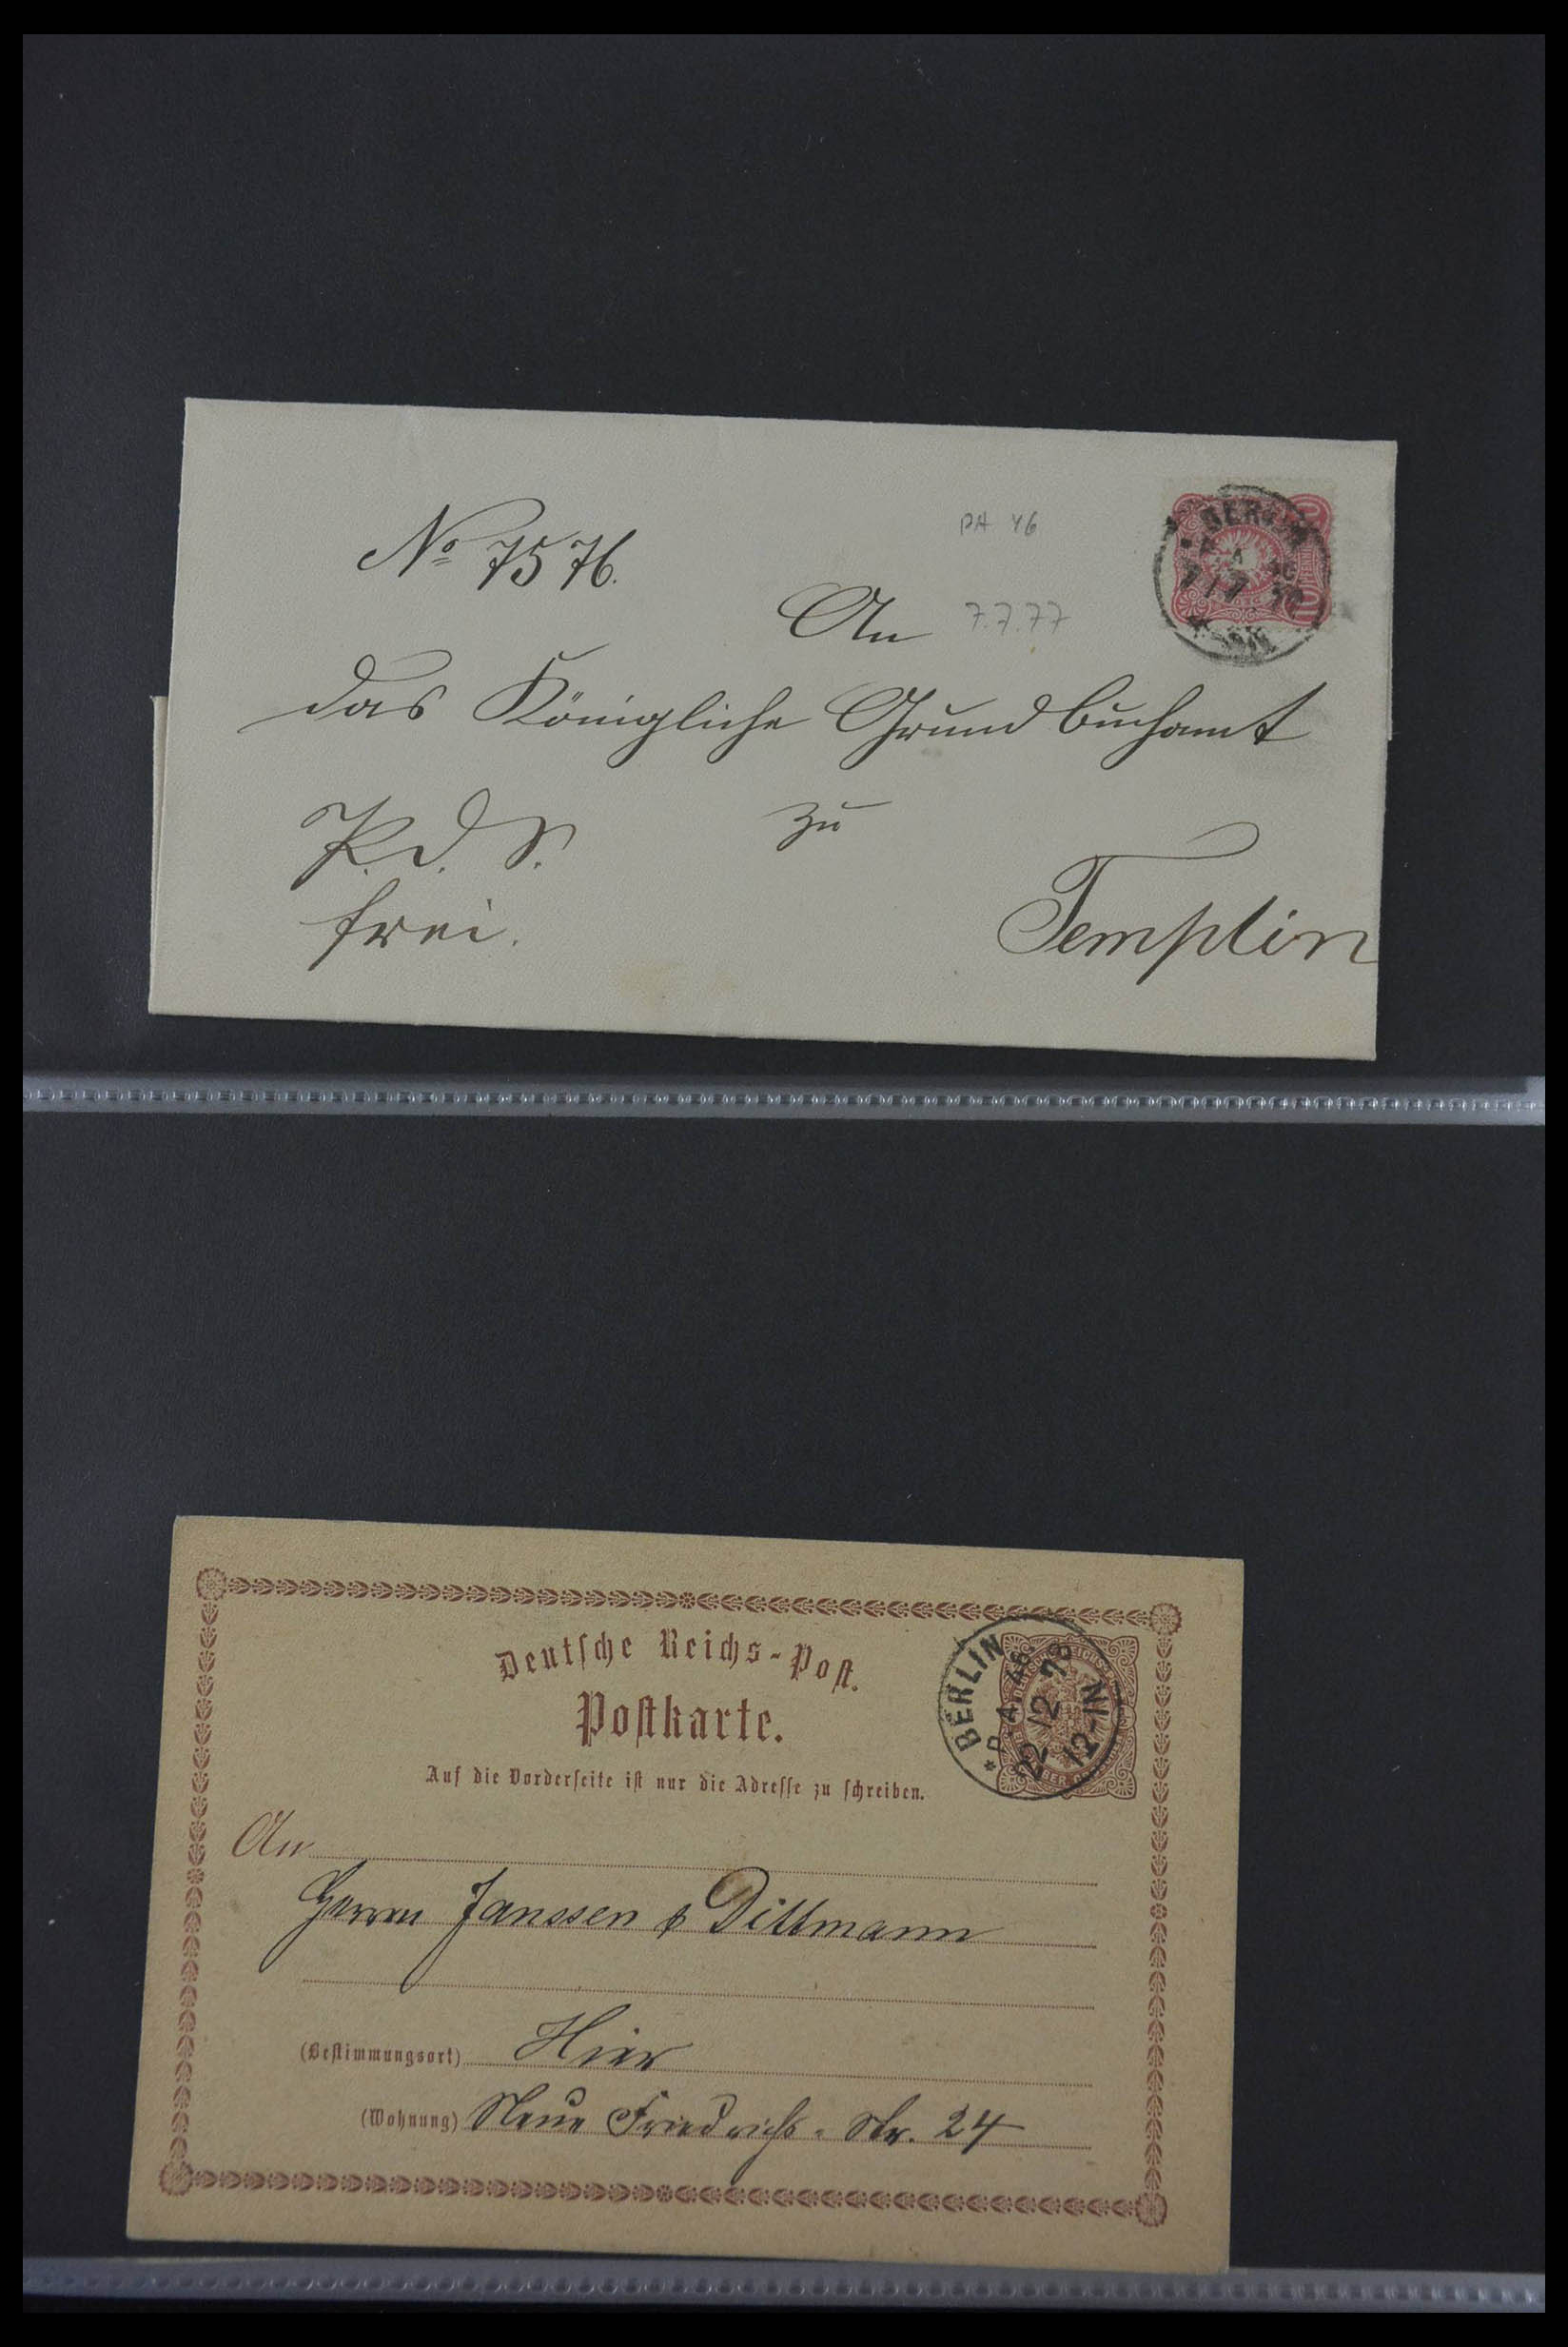 No 7576.
PA 46
BERLIN
An
7.7.77
das Königliche Grundbuchamt
P. d. S.
zu
frei.
Templin
Deutsche Reichs-Post.
Postkarte.
BERLIN
P.A. 46.
22 12 78
12-1N
Auf die Vorderseite ist nur die Adresse zu schreiben.
An
Herrn Janssen & Dittmann
(Bestimmungsort) Hier
(Wohnung) Neue Friedrichs-Str. 24